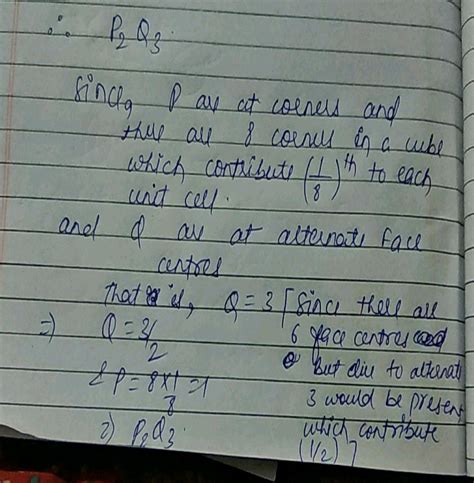 ∴ P₂Q₃.
Since, P are at corners and
there are 8 corners in a cube
which contribute (1/8)ᵗʰ to each
unit cell.
and Q are at alternate face
centres
that is, Q = 3 [Since there are
6 face centres
⇒ Q = 3/2
But due to alternate
& P = 8×1/8 = 1
3 would be present
⇒ P₂Q₃.
which contribute
(1/2)]